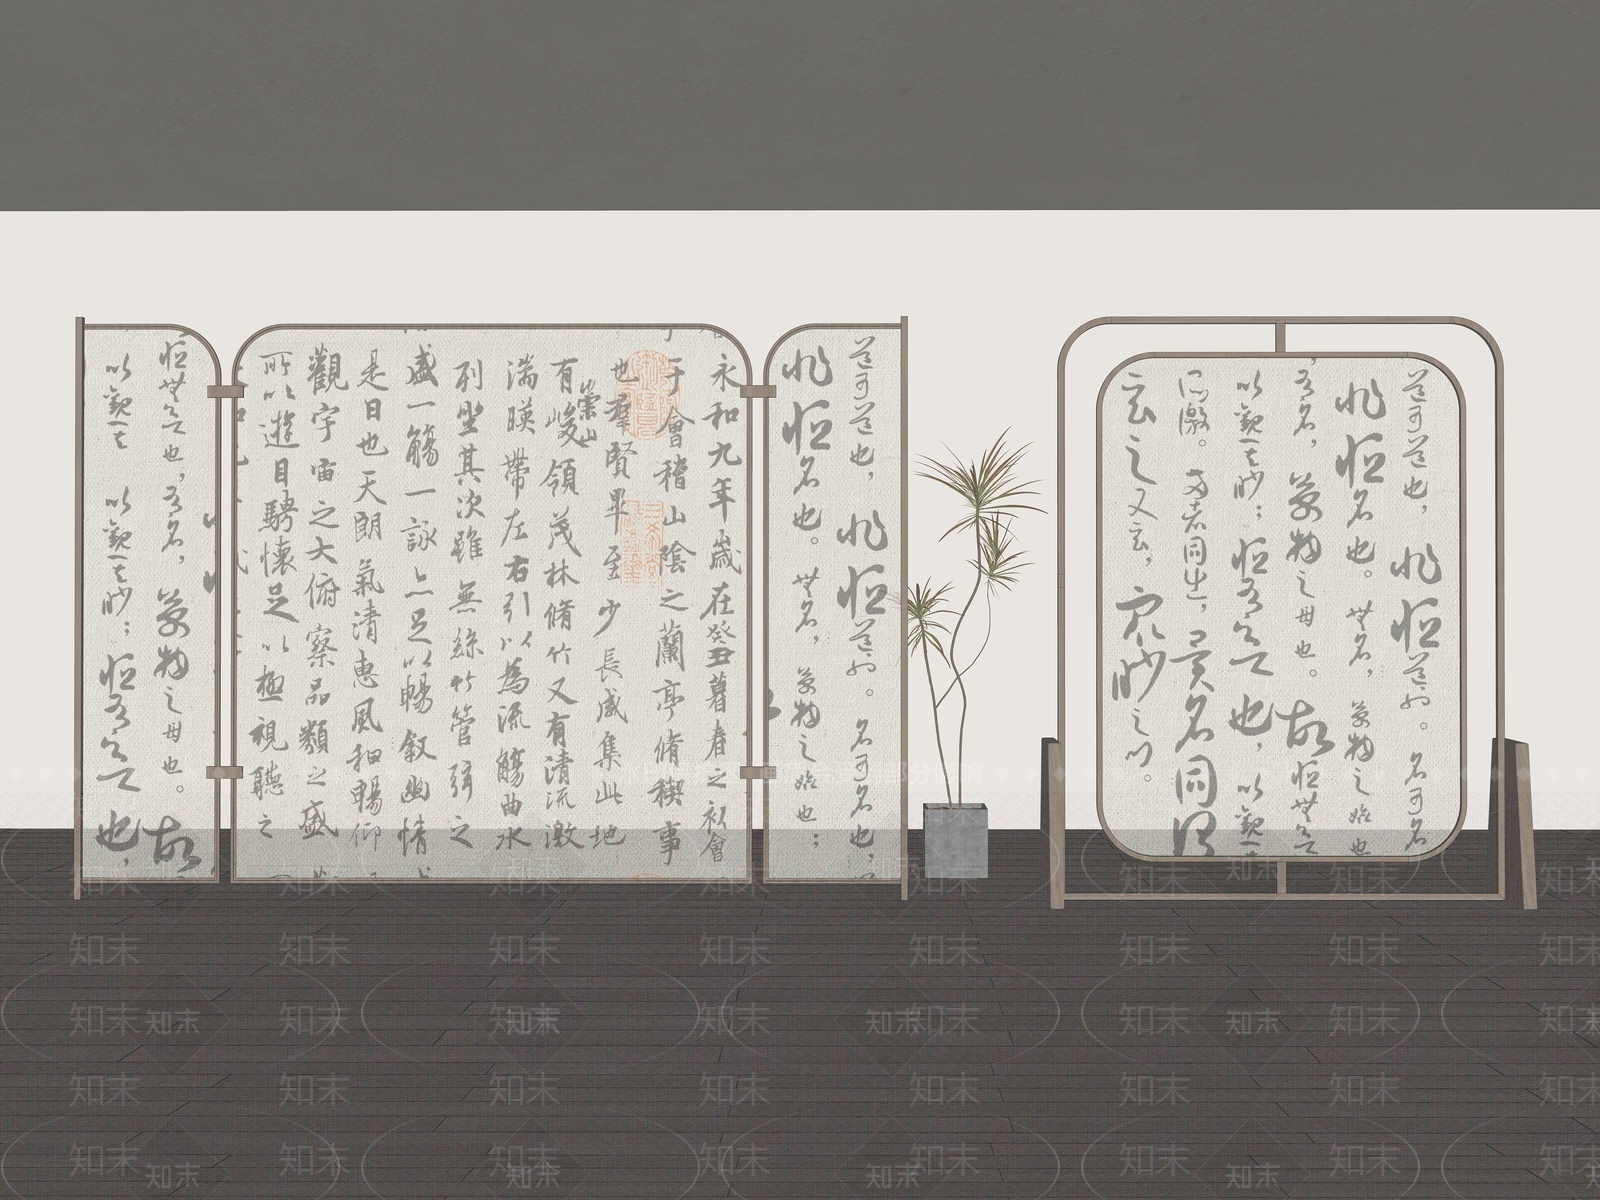 恒無欲也，有名，萬物之母也。故
以觀其 以觀其眇；恒有欲也，
永和九年歲在癸丑暮春之初會
于會稽山陰之蘭亭脩稧事
也群賢畢至少長咸集此地
有崇山峻領茂林脩竹又有清流激
湍暎帶左右引以為流觴曲水
列坐其次雖無絲竹管弦之
盛一觴一詠亦足以暢敘幽情
是日也天朗氣清惠風和暢仰
觀宇宙之大俯察品類之盛
所以遊目騁懷足以極視聽之
道可道也，非恒道也。名可名也，
非恒名也。無名，萬物之始也；
道可道也，非恒道也。名可名
非恒名也。無名，萬物之始也
有名，萬物之母也。故恒無欲
以觀其眇；恒有欲也，以觀
所噭。兩者同出，異名同謂
玄之又玄，眾眇之門。
知末